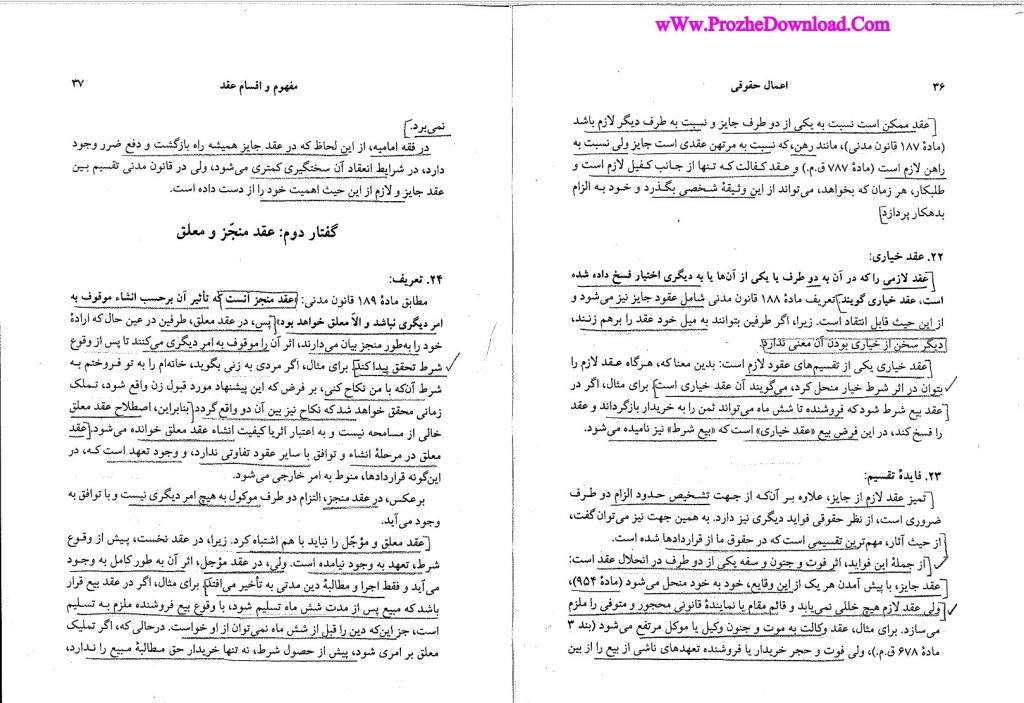 wWw.ProzheDownload.Com
۳۶
اعمال حقوقی
عقد ممکن است نسبت به یکی از دو طرف جایز و نسبت به طرف دیگر لازم باشد
(مادهٔ ۱۸۷ قانون مدنی)، مانند رهن،که نسبت به مرتهن عقدی است جایز ولی نسبت به
راهن لازم است (مادهٔ ۷۸۷ ق.م.) و عقد کفالت که تنها از جانب کفیل لازم است و
طلبکار، هر زمان که بخواهد، می‌تواند از این وثیقهٔ شخصی بگذرد و خود به الزام
بدهکار پردازد
۲۲. عقد خیاری:
عقد لازمی را که در آن به دو طرف یا یکی از آن‌ها یا به دیگری اختیار فسخ داده شده
است، عقد خیاری گویند. تعریف مادهٔ ۱۸۸ قانون مدنی شامل عقود جایز نیز می‌شود و
از این حیث قابل انتقاد است. زیرا، اگر طرفین بتوانند به میل خود عقد را برهم زنند،
دیگر سخن از خیاری بودن آن معنی ندارد.
عقد خیاری یکی از تقسیم‌های عقود لازم است: بدین معنا که، هرگاه عقد لازم را
بتوان در اثر شرط خیار منحل کرد، می‌گویند آن عقد خیاری است. برای مثال، اگر در
عقد بیع شرط شود که فروشنده تا شش ماه می‌تواند ثمن را به خریدار بازگرداند و عقد
را فسخ کند، در این فرض بیع «عقد خیاری» است که «بیع شرط» نیز نامیده می‌شود.
۲۳. فایدهٔ تقسیم:
تمیز عقد لازم از جایز، علاوه بر آن‌که از جهت تشخیص حدود الزام دو طرف
ضروری است، از نظر حقوقی فواید دیگری نیز دارد. به همین جهت نیز می‌توان گفت،
از حیث آثار، مهم‌ترین تقسیمی است که در حقوق ما از قراردادها شده است.
از جملهٔ این فواید، اثر فوت و جنون و سفه یکی از دو طرف در انحلال عقد است:
عقد جایز، با پیش آمدن هر یک از این وقایع، خود به خود منحل می‌شود (مادهٔ ۹۵۴)،
ولی عقد لازم هیچ خللی نمی‌یابد و قائم مقام یا نمایندهٔ قانونی محجور و متوفی را ملزم
می‌سازد. برای مثال، عقد وکالت به موت و جنون وکیل یا موکل مرتفع می‌شود (بند ۳
مادهٔ ۶۷۸ ق.م.)، ولی فوت و حجر خریدار یا فروشنده تعهدهای ناشی از بیع را از بین
مفهوم و اقسام عقد
۳۷
نمی‌برد.
در فقه امامیه، از این لحاظ که در عقد جایز همیشه راه بازگشت و دفع ضرر وجود
دارد، در شرایط انعقاد آن سختگیری کمتری می‌شود، ولی در قانون مدنی تقسیم بین
عقد جایز و لازم از این حیث اهمیت خود را از دست داده است.
گفتار دوم: عقد منجّز و معلق
۲۴. تعریف:
مطابق مادهٔ ۱۸۹ قانون مدنی: «عقد منجز آنست که تأثیر آن برحسب انشاء موقوف به
امر دیگری نباشد و الاّ معلق خواهد بود» پس، در عقد معلق، طرفین در عین حال که ارادهٔ
خود را به‌طور منجز بیان می‌دارند، اثر آن را موقوف به امر دیگری می‌کنند تا پس از وقوع
شرط تحقق پیدا کند. برای مثال، اگر مردی به زنی بگوید، خانه‌ام را به تو فروختم به
شرط آن‌که با من نکاح کنی، بر فرض که این پیشنهاد مورد قبول زن واقع شود، تملک
زمانی محقق خواهد شد که نکاح نیز بین آن دو واقع گردد. بنابراین، اصطلاح عقد معلق
خالی از مسامحه نیست و به اعتبار اثر یا کیفیت انشاء عقد معلق خوانده می‌شود. عقد
معلق در مرحلهٔ انشاء و توافق با سایر عقود تفاوتی ندارد، و وجود تعهد است که، در
این‌گونه قراردادها، منوط به امر خارجی می‌شود.
برعکس، در عقد منجز، التزام دو طرف موکول به هیچ امر دیگری نیست و با توافق به
وجود می‌آید.
عقد معلق و مؤجّل را نباید با هم اشتباه کرد. زیرا، در عقد نخست، پیش از وقوع
شرط، تعهد به وجود نیامده است. ولی، در عقد مؤجل، اثر آن به طور کامل به وجود
می‌آید و فقط اجرا و مطالبهٔ دین مدتی به تأخیر می‌افتد. برای مثال، اگر در عقد بیع قرار
باشد که مبیع پس از مدت شش ماه تسلیم شود، با وقوع بیع فروشنده ملزم به تسلیم
است، جز این‌که دین را قبل از شش ماه نمی‌توان از او خواست. درحالی که، اگر تملیک
معلق بر امری شود، پیش از حصول شرط، نه تنها خریدار حق مطالبهٔ مبیع را ندارد،